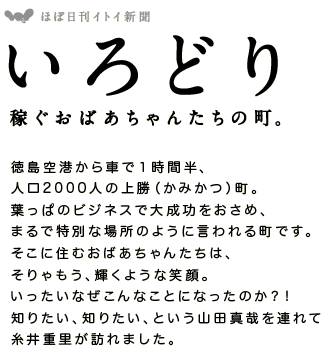 ほぼ日刊イトイ新聞
いろどり
稼ぐおばあちゃんたちの町。
徳島空港から車で1時間半、
人口2000人の上勝（かみかつ）町。
葉っぱのビジネスで大成功をおさめ、
まるで特別な場所のように言われる町です。
そこに住むおばあちゃんたちは、
そりゃもう、輝くような笑顔。
いったいなぜこんなことになったのか？！
知りたい、知りたい、という山田真哉を連れて
糸井重里が訪れました。